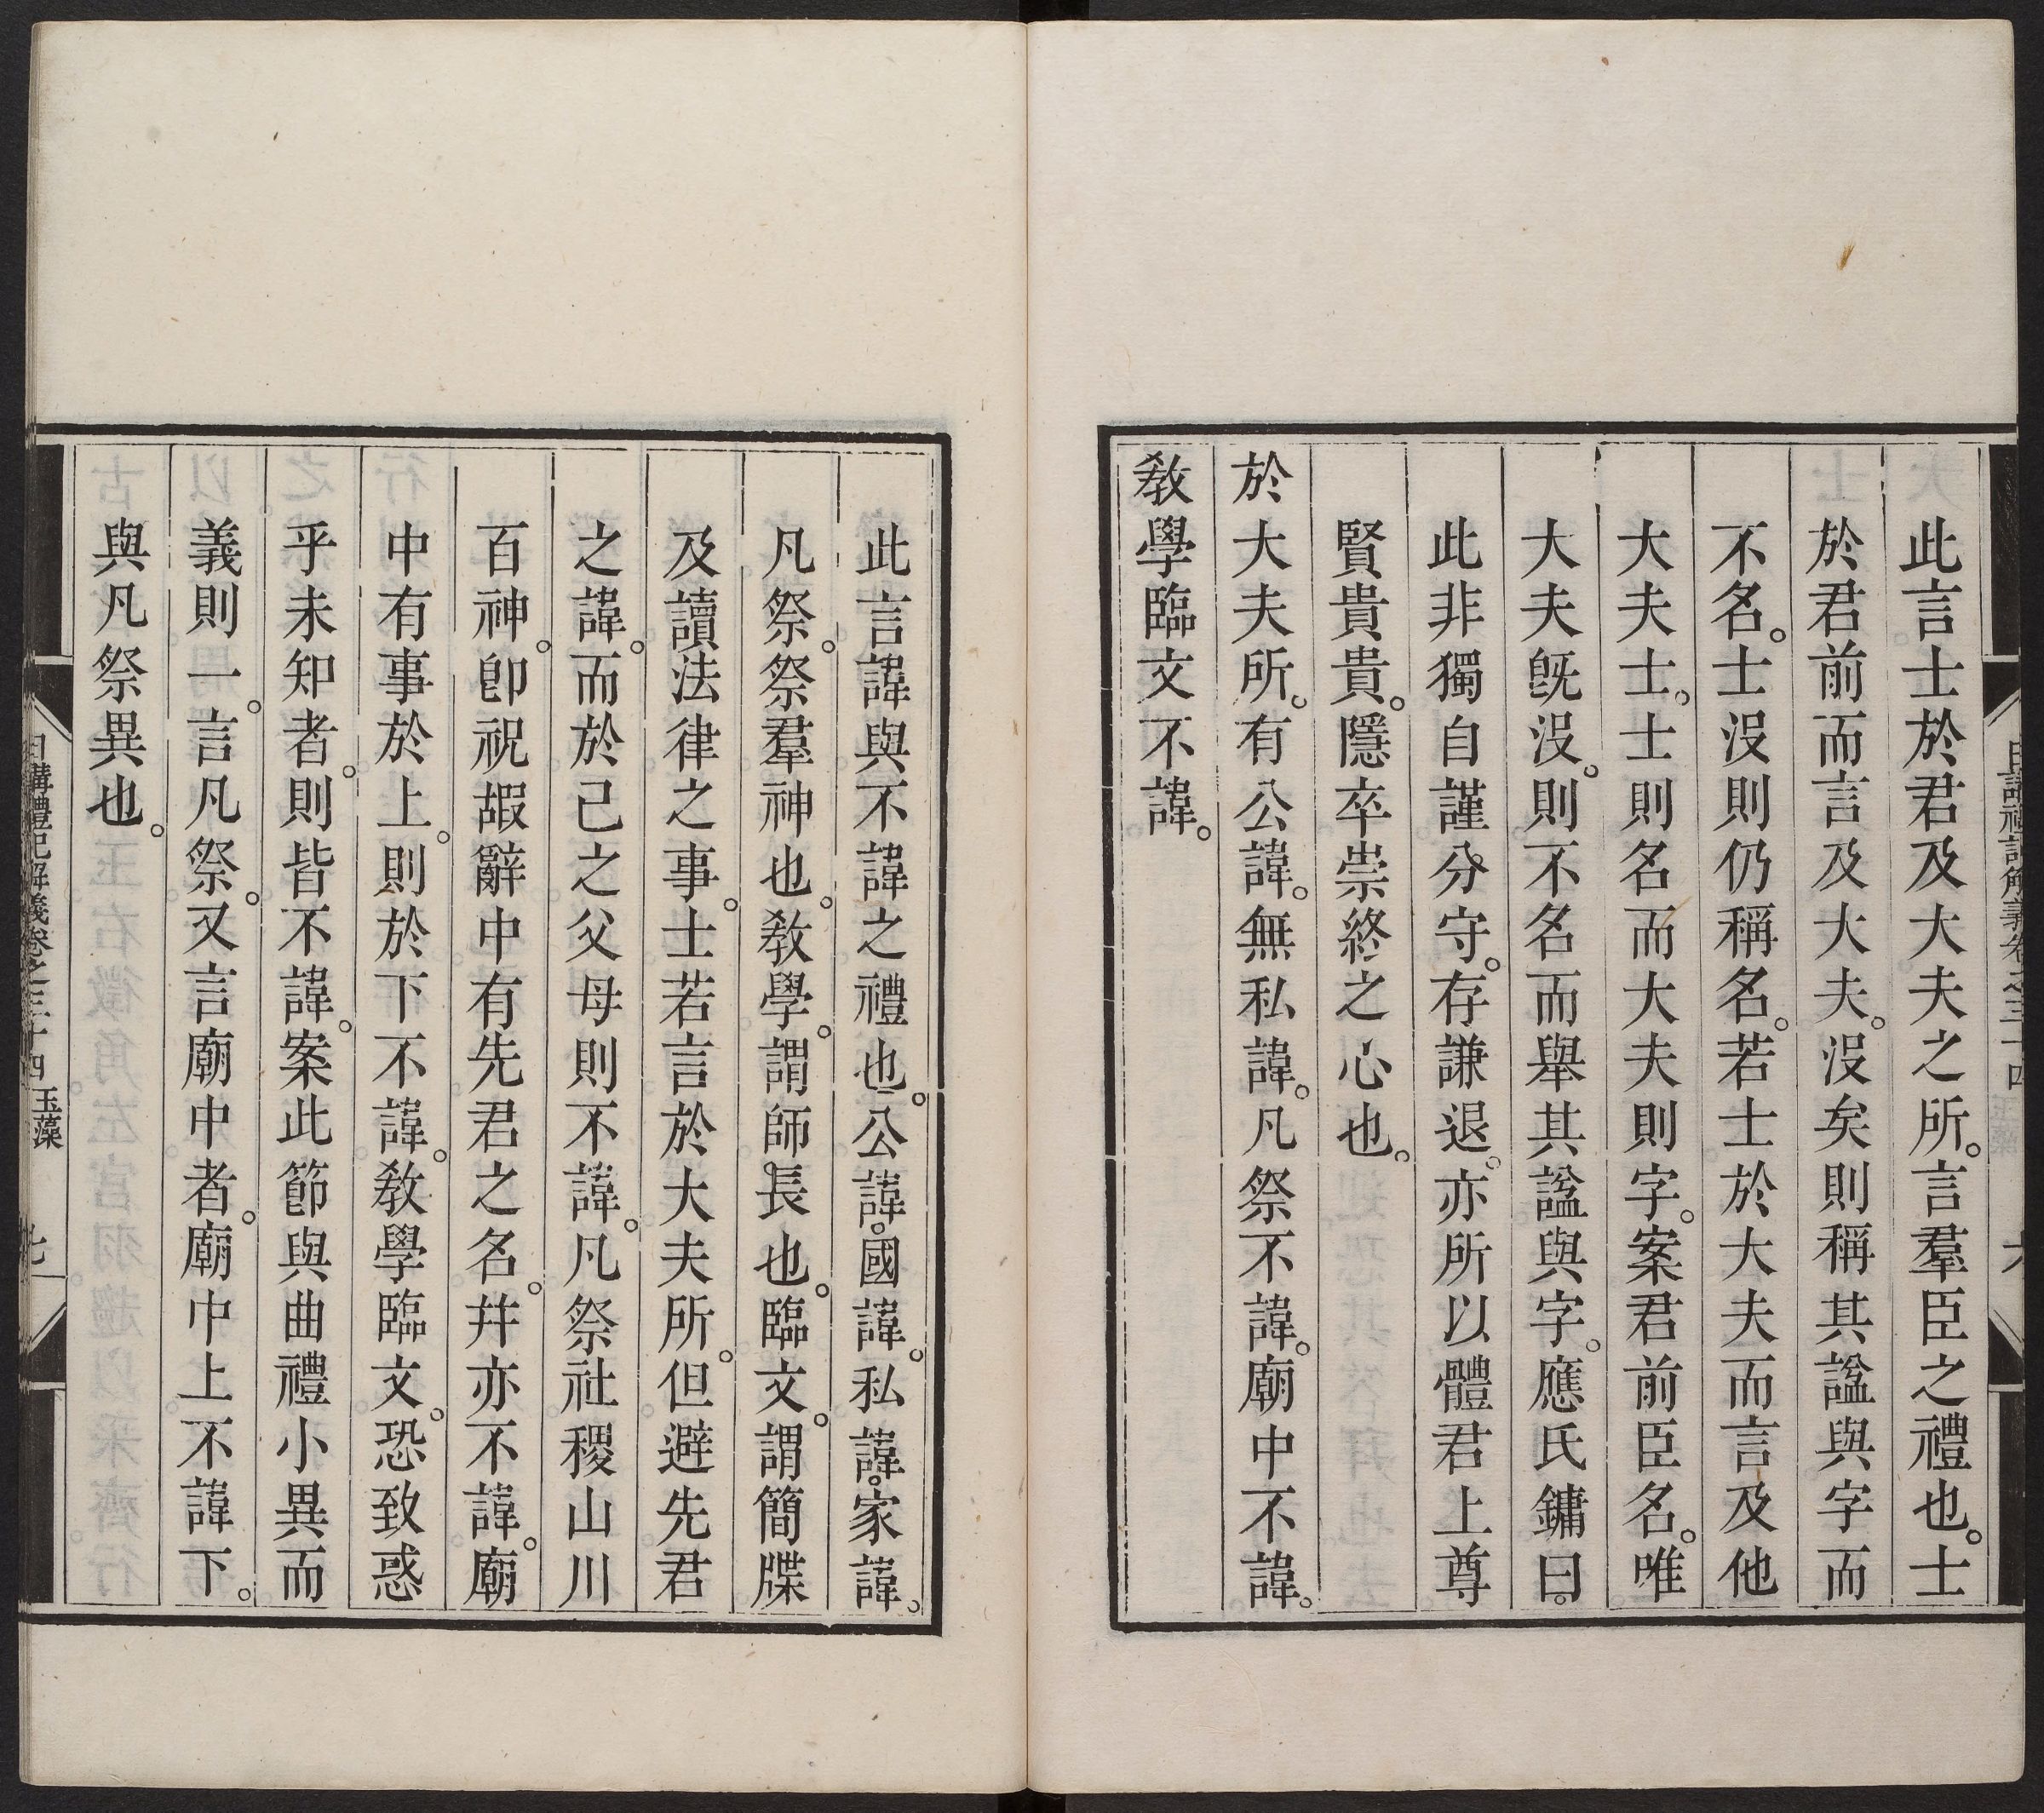 此言士於君及大夫之所。言羣臣之禮也。士
於君前而言及大夫。沒矣則稱其諡與字而
不名。士沒則仍稱名。若士於大夫而言及他
大夫士。士則名而大夫則字。案君前臣名。唯
大夫旣沒。則不名而舉其諡與字。應氏鏞曰。
此非獨自謹分守。存謙退。亦所以體君上尊
賢貴貴。隱卒崇終之心也。
於大夫所。有公諱。無私諱。凡祭不諱。廟中不諱。
敎學臨文不諱。
此言諱與不諱之禮也。公諱。國諱。私諱。家諱。
凡祭。祭羣神也。敎學。謂師長也。臨文。謂簡牒
及讀法律之事。士若言於大夫所。但避先君
之諱。而於己之父母則不諱。凡祭社稷山川
百神。卽祝嘏辭中有先君之名。幷亦不諱。廟
中有事於上。則於下不諱。敎學臨文。恐致惑
乎未知者。則皆不諱。案此節與曲禮小異而
義則一。言凡祭。又言廟中者。廟中上不諱下。
與凡祭異也。
日講禮記解義卷之三十四 玉藻 七